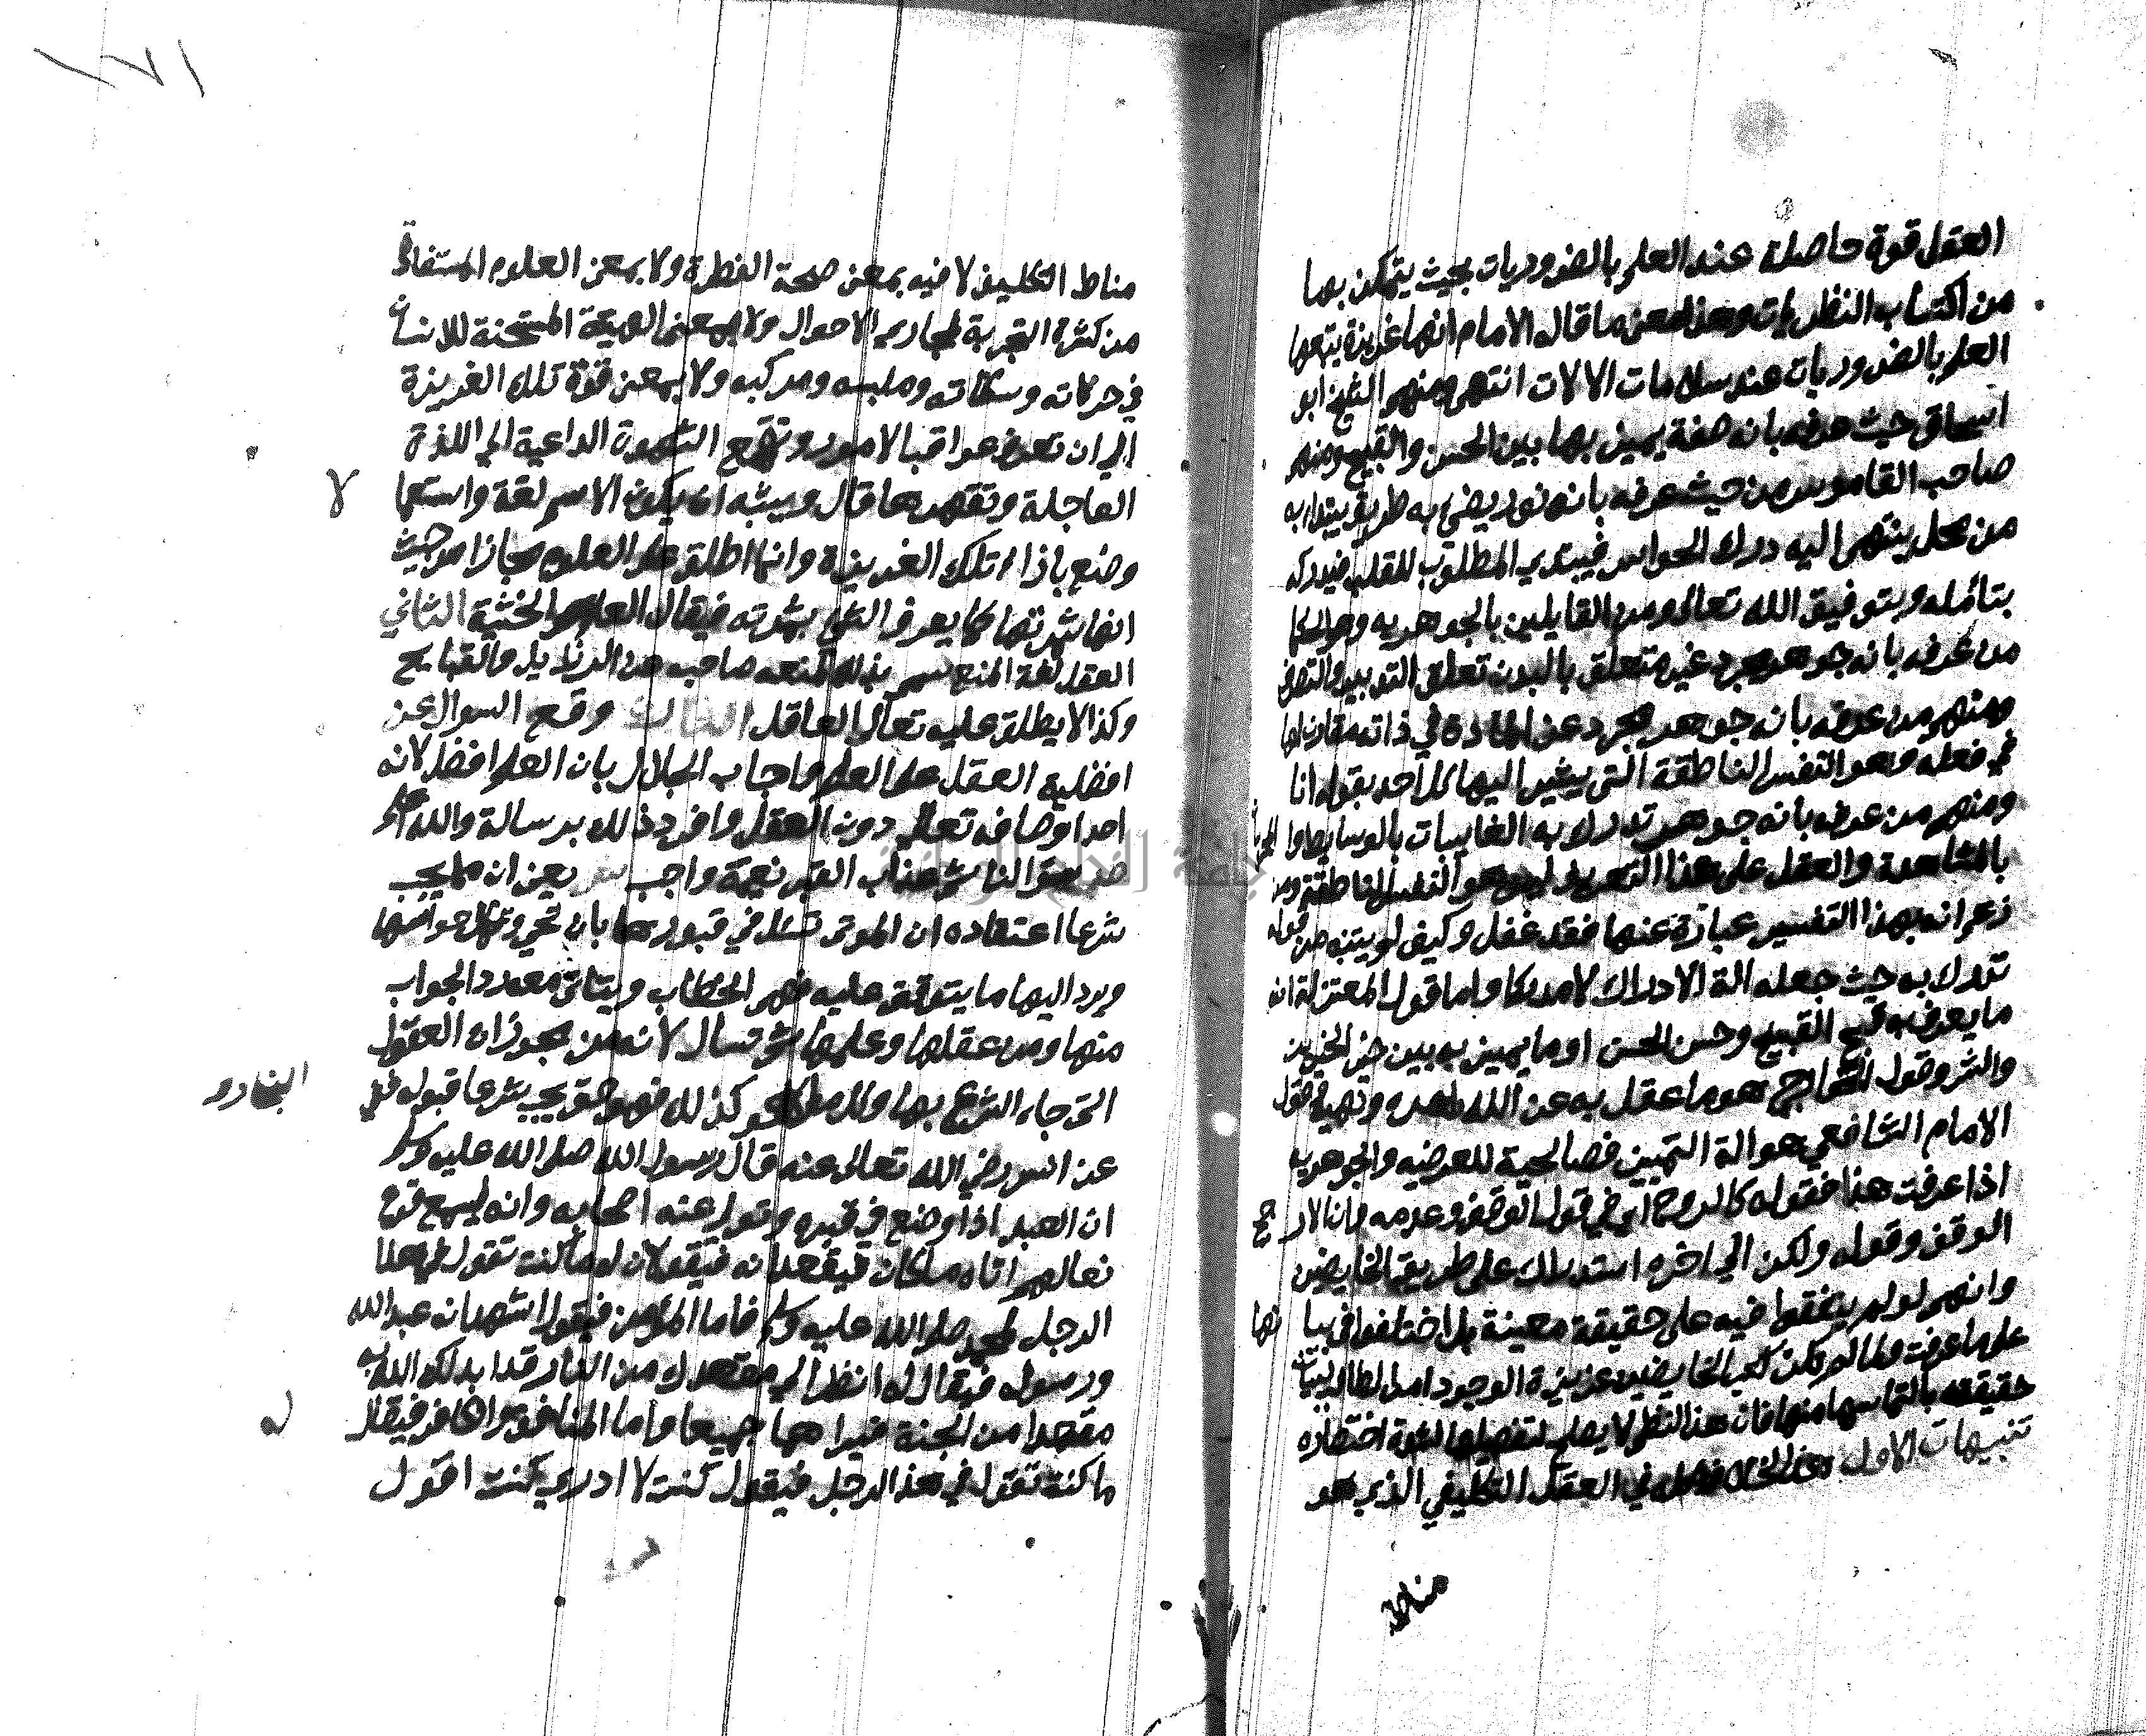 العقل قوة حاصلة عند العلم بالضروريات بحيث يتمكن بها
من اكتساب النظريات وهذا معنى ما قاله الامام انها غريزة يتبعها
العلم بالضروريات عند سلامات الالات انتهى ومنهم الشيخ ابو
اسحاق حيث عرفه بانه صفة يميز بها بين الحسن والقبيح ومنهم
صاحب القاموس من حيث عرفه بانه نور يضئ به طريق يبتدا به
من محل ينتهى اليه درك الحواس فيبتدي المطلوب للقلب فيدركه
بتأمله وبتوفيق الله تعالى ومن القايلين بالجوهريه وهم الحكما
من عرفه بانه جوهر مجرد غير متعلق بالبدن تعلق التدبير والتصرف
ومنهم من عرفه بانه جوهر مجرد عن المادة في ذاته مقارن لها
في فعله وهو النفس الناطقة التى يشير اليها كل احد بقوله انا
ومنهم من عرفه بانه جوهر تدرك به الغايبات بالوسايط والمحسوسات
بالمشاهدة والعقل على هذا التعريف ليس هو النفس الناطقة ومن
زعم انه بهذا التفسير عبارة عنها فقد غفل وكيف لم يتنبه من قوله
تدرك به حيث جعله الة الادراك لا مدركا واما قول المعتزلة انه
ما يعرف به قبح القبيح وحسن الحسن او ما يميز به بين خير الخيرين
والشر وقول الخوارج هو ما عقل به عن الله امره ونهيه وقول
الامام الشافعي هو الة التمييز فصالحية للعرضيه والجوهريه
اذا عرفت هذا فقوله كالروح اي في قول الوقف وعدمه وان الارجح
الوقف وقوله ولكن الى اخره استدراك على طريقة الخايضين
وانهم لو لم يتفقوا فيه على حقيقة معينة بل اختلفوا في بيانها
على ما عرفت ولما لم تكن كتب الخايضين عزيزة الوجود امر الطالب لبيان
حقيقته بالتماسها منها فان هذا النظم لا يصلح لتفصيلها لشدة اختصاره
تنبيهات الاول هذا الخلاف في العقل التكليفي الذي هو
مناط
١٧١
مناط التكليف لا فيه بمعنى صحة الفطرة ولا بمعنى العلوم المستفادة
من كثرة التجربة لمجاري الاحوال ولا بمعنى الهيئة المستحسنة للانسان
في حركاته وسكناته وملبسه ومركبه ولا بمعنى قوة تلك الغريزة
الى ان تعرف عواقب الامور وتقمع الشهوة الداعية الى اللذة
العاجلة وتقهرها قال ويشبه ان يكون الاسم لغة واستعمالا
وضع بازاء تلك الغريزة وانما اطلق على العلوم مجازا من حيث
انها ثمرتها كما يعرف الشئ بثمرته فيقال العلم هو الخشية الثاني
العقل لغة المنع سمي بذلك لمنعه صاحبه من الرذايل والقبايح
وكذا لا يطلق عليه تعالى العاقل الثالث وقع السوال عن
افضلية العقل على العلم فاجاب الجلال بان العلم افضل لانه
احد اوصافه تعالى دون العقل وافرد ذلك برسالة والله اعلم
ص سؤالنا ثم عذاب القبر نعيمه واجب ش يعنى ان مما يجب
شرعا اعتقاده ان الموتى تسئل في قبورها بان تحيى وتكمل حواسها
ويرد اليها ما يتوقف عليه فهم الخطاب ويتاتى معه رد الجواب
منها ومن عقلها وعلمها ثم تسال لانه من مجوزات العقول
التى جاء الشرع بها وكل ما هو كذلك فهو حق يجب شرعا قبوله ففي
البخاري
عن انس رضي الله تعالى عنه قال رسول الله صلى الله عليه وسلم
ان العبد اذا وضع في قبره وتولى عنه اصحابه وانه ليسمع قرع
نعالهم اتاه ملكان فيقعدانه فيقولان له ما كنت تقول في هذا
الرجل لمحمد صلى الله عليه وسلم فاما المؤمن فيقول اشهد انه عبد الله
ورسوله فيقال له انظر الى مقعدك من النار قد ابدلك الله به
مقعدا من الجنة فيراهما جميعا واما المنافق والكافر فيقال
له
ما كنت تقول في هذا الرجل فيقول كنت لا ادري كنت اقول